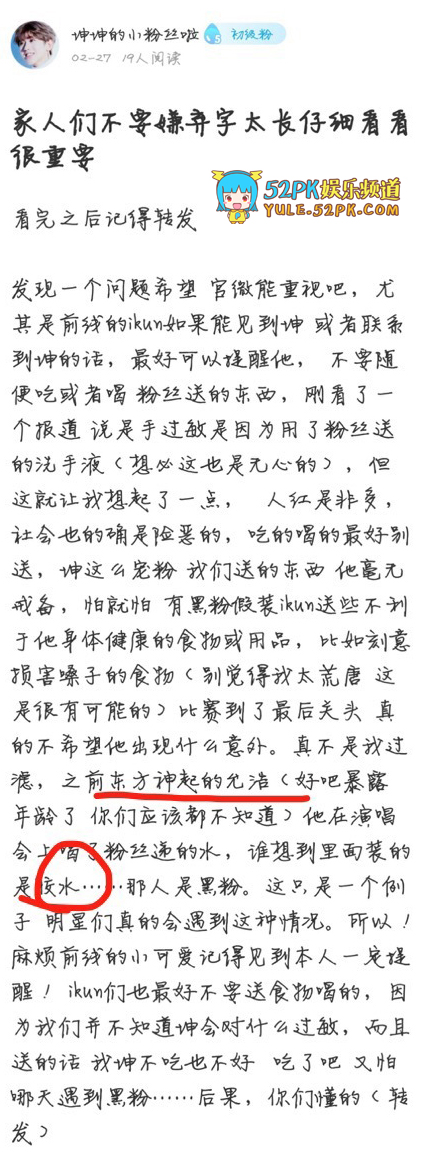 坤坤的小粉丝啦 5 初级粉
02-27 19人阅读
家人们不要嫌弃字太长仔细看看
很重要
52PK娱乐频道
YULE.52PK.COM
看完之后记得转发
发现一个问题希望 官微能重视吧，尤
其是前线的ikun如果能见到坤 或者联系
到坤的话，最好可以提醒他， 不要随
便吃或者喝 粉丝送的东西，刚看了一
个报道 说是手过敏是因为用了粉丝送
的洗手液（想必这也是无心的），但
这就让我想起了一点， 人红是非多，
社会也的确是险恶的，吃的喝的最好别
送，坤这么宠粉 我们送的东西 他毫无
戒备，怕就怕 有黑粉假装ikun送些不利
于他身体健康的食物或用品，比如刻意
损害嗓子的食物（别觉得我太荒唐 这
是很有可能的）比赛到了最后关头 真
的不希望他出现什么意外。真不是我过
滤，之前东方神起的允浩（好吧暴露
年龄了 你们应该都不知道）他在演唱
会上喝了粉丝递的水，谁想到里面装的
是胶水……那人是黑粉。这只是一个例
子 明星们真的会遇到这种情况。所以！
麻烦前线的小可爱记得见到本人一定提
醒！ikun们也最好不要送食物喝的，因
为我们并不知道坤会对什么过敏，而且
送的话 我坤不吃也不好 吃了吧 又怕
哪天遇到黑粉……后果，你们懂的（转
发）